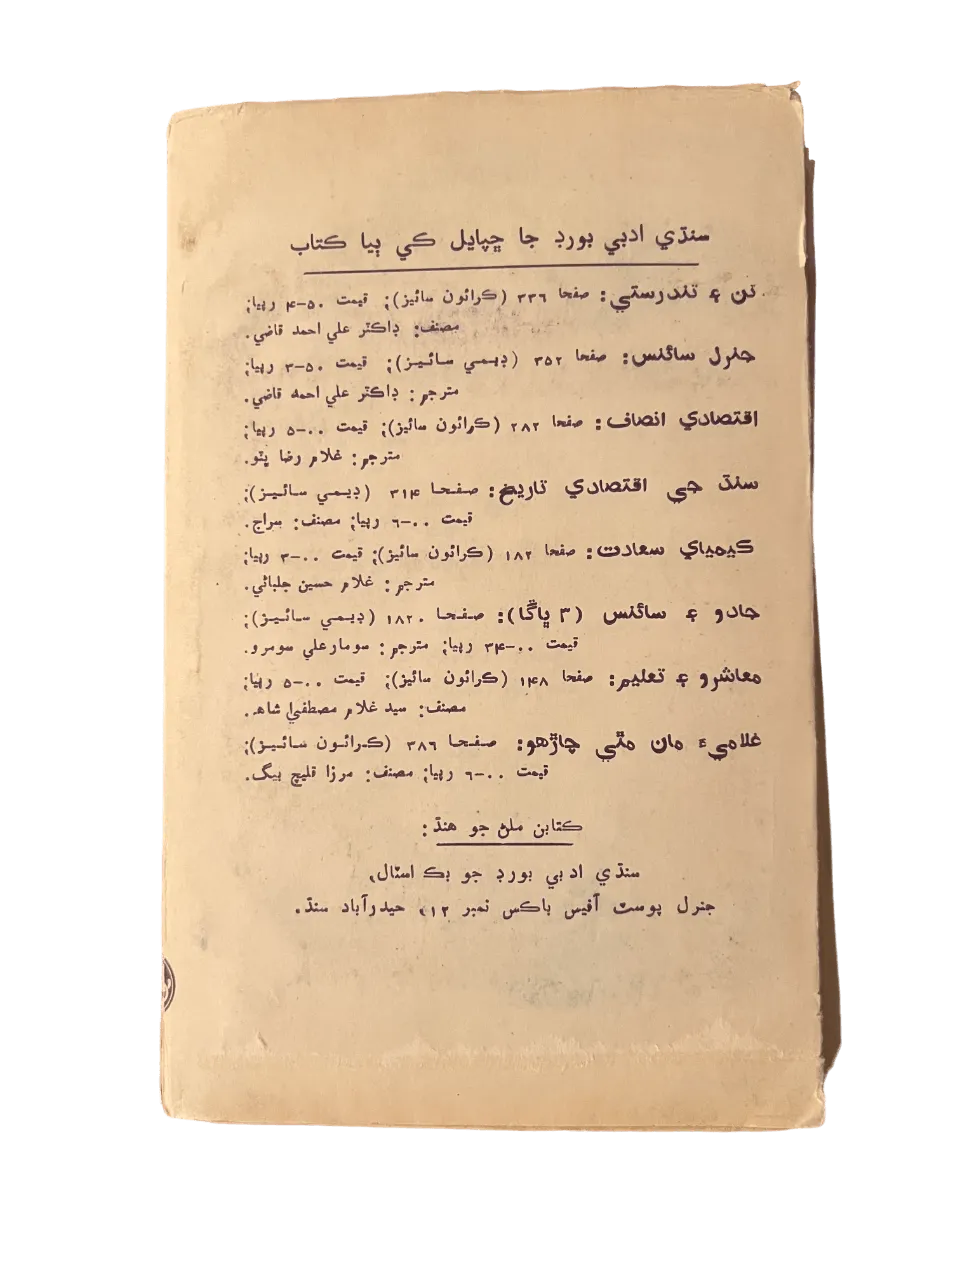 سنڌي ادبي بورڊ جا ڇپايل ڪي ٻيا ڪتاب
تن ۽ تندرستي: صفحا ۳۳۶ (ڪرائون سائيز)؛ قيمت ۵۰-۴ رپيا؛
مصنف: ڊاڪٽر علي احمد قاضي.
جنرل سائنس: صفحا ۳۵۲ (ڊيمي سائيز)؛ قيمت ۵۰-۳ رپيا؛
مترجم: ڊاڪٽر علي احمد قاضي.
اقتصادي انصاف: صفحا ۲۸۲ (ڪرائون سائيز)؛ قيمت ۰۰-۵ رپيا؛
مترجم: غلام رضا ڀٽو.
سنڌ جي اقتصادي تاريخ: صفحا ۳۱۴ (ڊيمي سائيز)؛
قيمت ۰۰-۶ رپيا؛ مصنف: سراج.
ڪيمياي سعادت: صفحا ۱۸۲ (ڪرائون سائيز)؛ قيمت ۰۰-۳ رپيا؛
مترجم: غلام حسين جلباڻي.
جادو ۽ سائنس (۳ ڀاڱا): صفحا ۱۸۲۰ (ڊيمي سائيز)؛
قيمت ۰۰-۳۴ رپيا؛ مترجم: سومارعلي سومرو.
معاشرو ۽ تعليم: صفحا ۱۴۸ (ڪرائون سائيز)؛ قيمت ۰۰-۵ رپيا؛
مصنف: سيد غلام مصطفيٰ شاھ.
غلاميءَ مان مٿي چاڙهو: صفحا ۳۸۶ (ڪرائون سائيز)؛
قيمت ۰۰-۶ رپيا؛ مصنف: مرزا قليچ بيگ.
ڪتابن ملڻ جو هنڌ:
سنڌي ادبي بورڊ جو بڪ اسٽال،
جنرل پوسٽ آفيس باڪس نمبر ۱۲، حيدرآباد سنڌ.